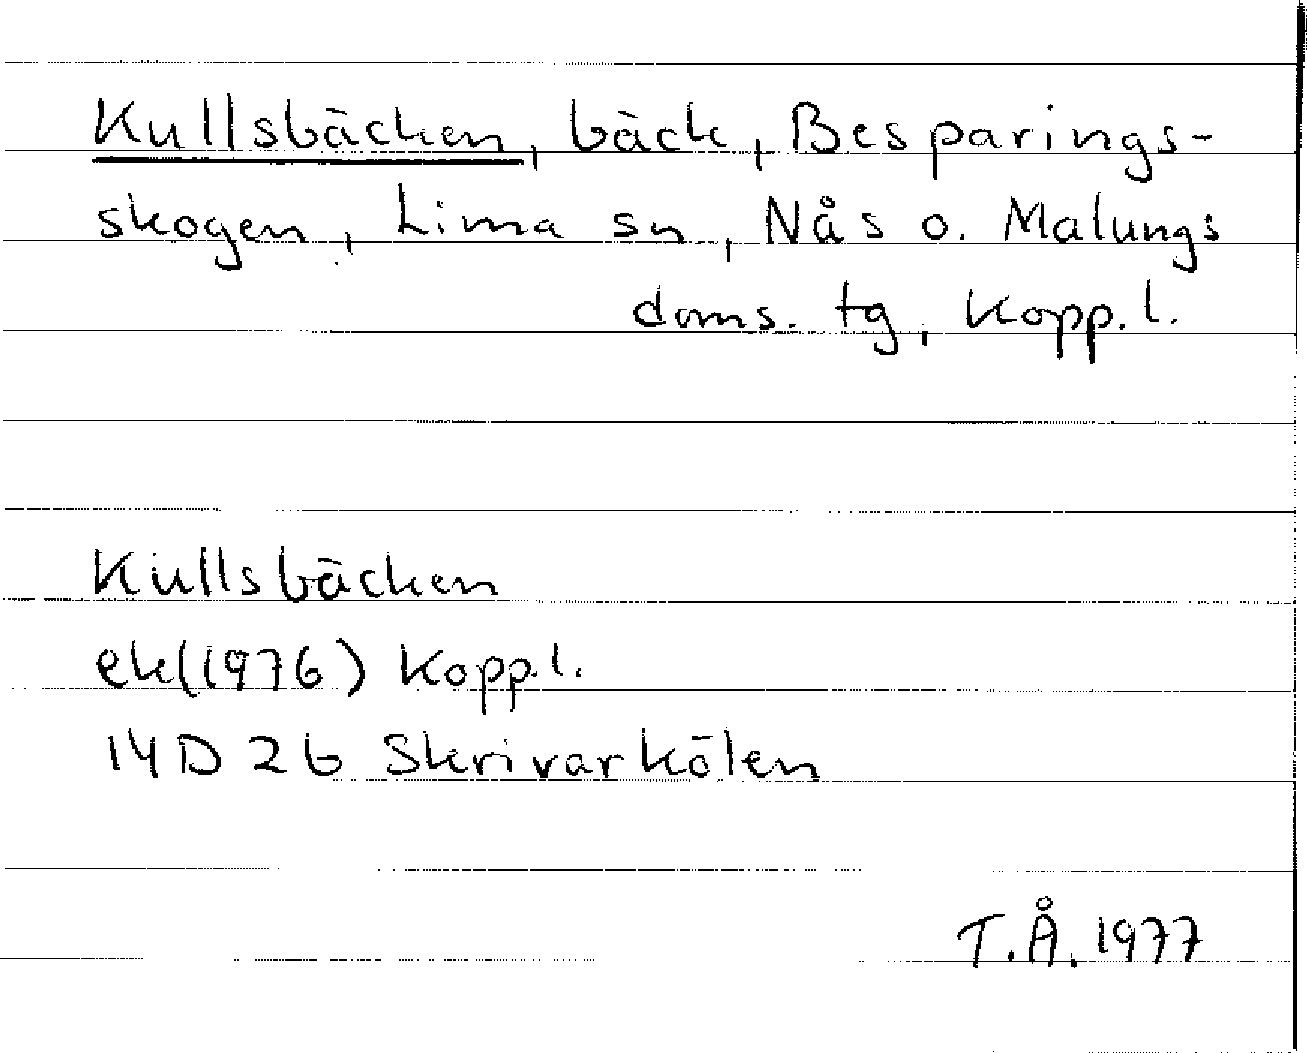 Kullsbäcken, bäck, Besparings-
skogen, Lima sn, Nås o. Malungs
doms. tg, Kopp. l.
Kullsbäcken
ek(1976) Kopp.l.
14D 2b Skrivarkölen
T.Å. 1977